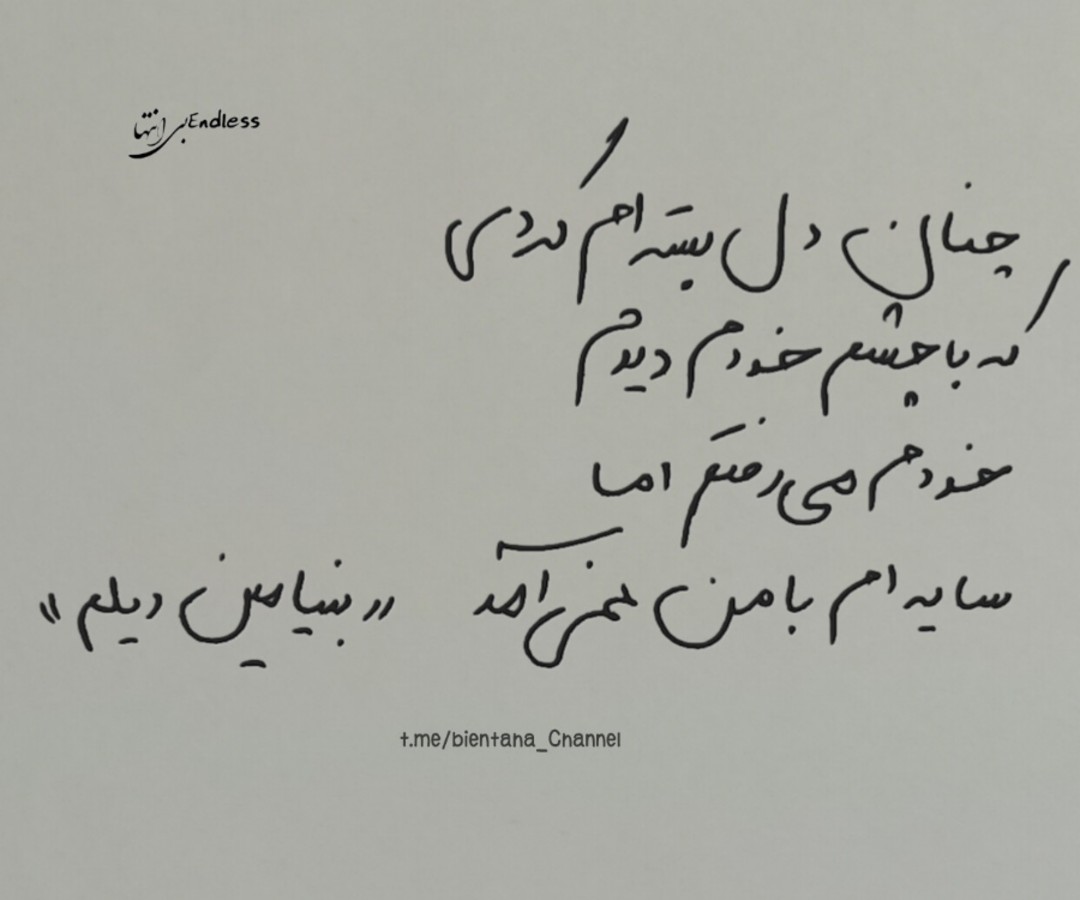 بی انتها Endless
چنان دل بسته ام کردی
که با چشم خودم دیدم
خودم می رفتم اما
سایه ام با من نمی آمد «بنیامین دیلم»
t.me/bientana_Channel